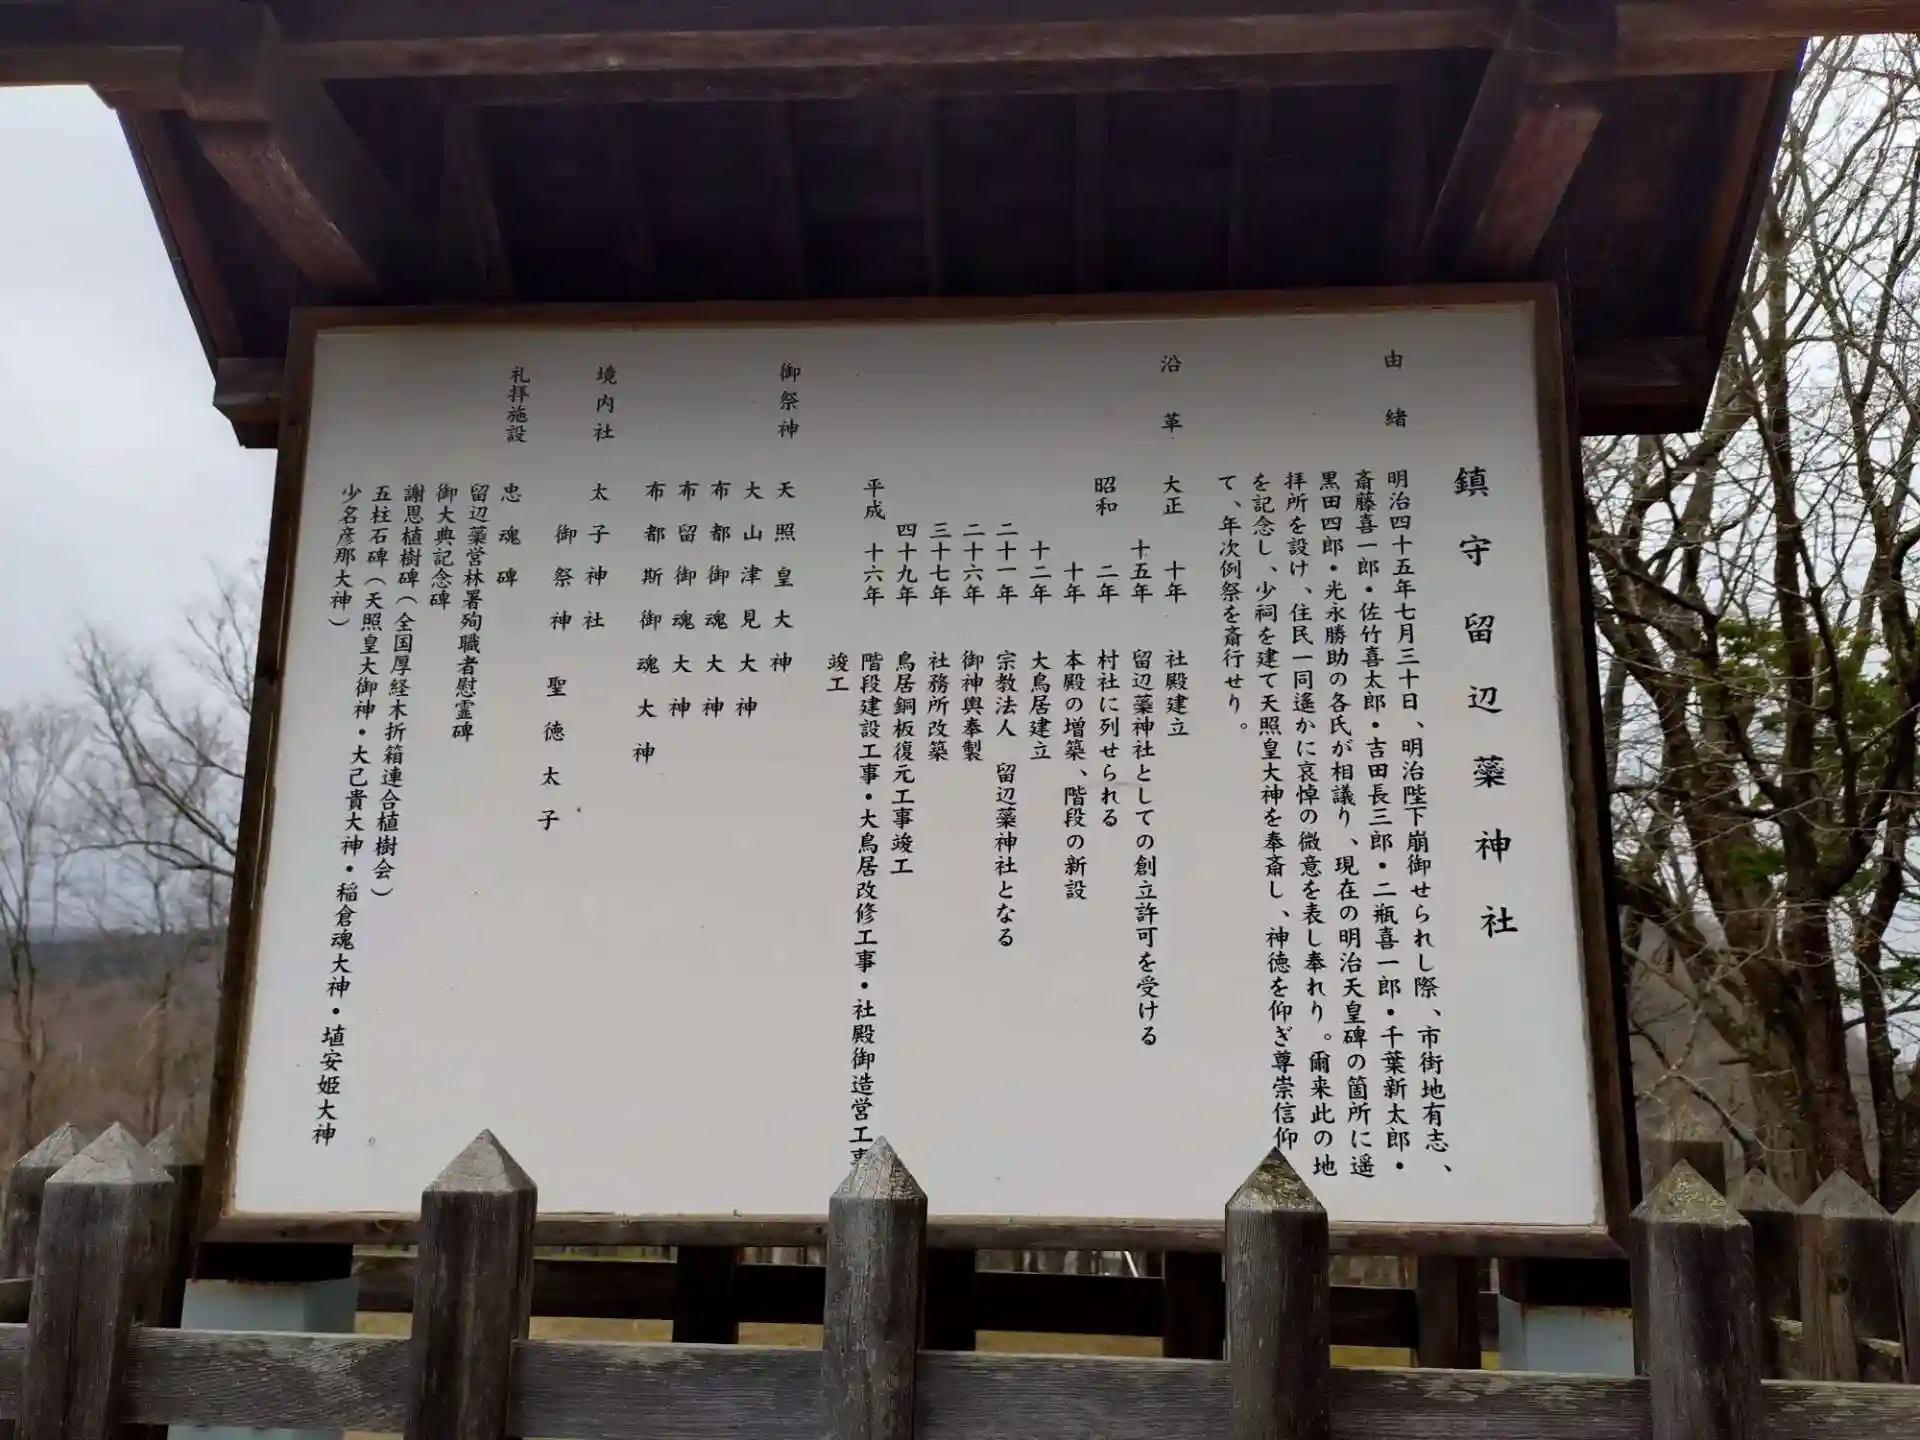 鎮守留辺蘂神社
由緒
明治四十五年七月三十日、明治陛下崩御せられし際、市街地有志、
斎藤喜一郎・佐竹喜太郎・吉田長三郎・二瓶喜一郎・千葉新太郎・
黒田四郎・光永勝助の各氏が相議り、現在の明治天皇碑の箇所に遥
拝所を設け、住民一同遙かに哀悼の微意を表し奉れり。爾来此の地
を記念し、少祠を建て天照皇大神を奉斎し、神徳を仰ぎ尊崇信仰
て、年次例祭を斎行せり。
沿革
大正 十年 社殿建立
十五年 留辺蘂神社としての創立許可を受ける
昭和 二年 村社に列せられる
十年 本殿の増築、階段の新設
十二年 大鳥居建立
二十一年 宗教法人 留辺蘂神社となる
二十六年 御神輿奉製
三十七年 社務所改築
四十九年 鳥居銅板復元工事竣工
平成 十六年 階段建設工事・大鳥居改修工事・社殿御造営工事
竣工
御祭神 天照皇大神
大山津見大神
布都御魂大神
布留御魂大神
布都斯御魂大神
境内社 太子神社
御祭神 聖徳太子
礼拝施設 忠魂碑
留辺蘂営林署殉職者慰霊碑
御大典記念碑
謝恩植樹碑（全国厚経木折箱連合植樹会）
五柱石碑（天照皇大御神・大己貴大神・稲倉魂大神・埴安姫大神
少名彦那大神）